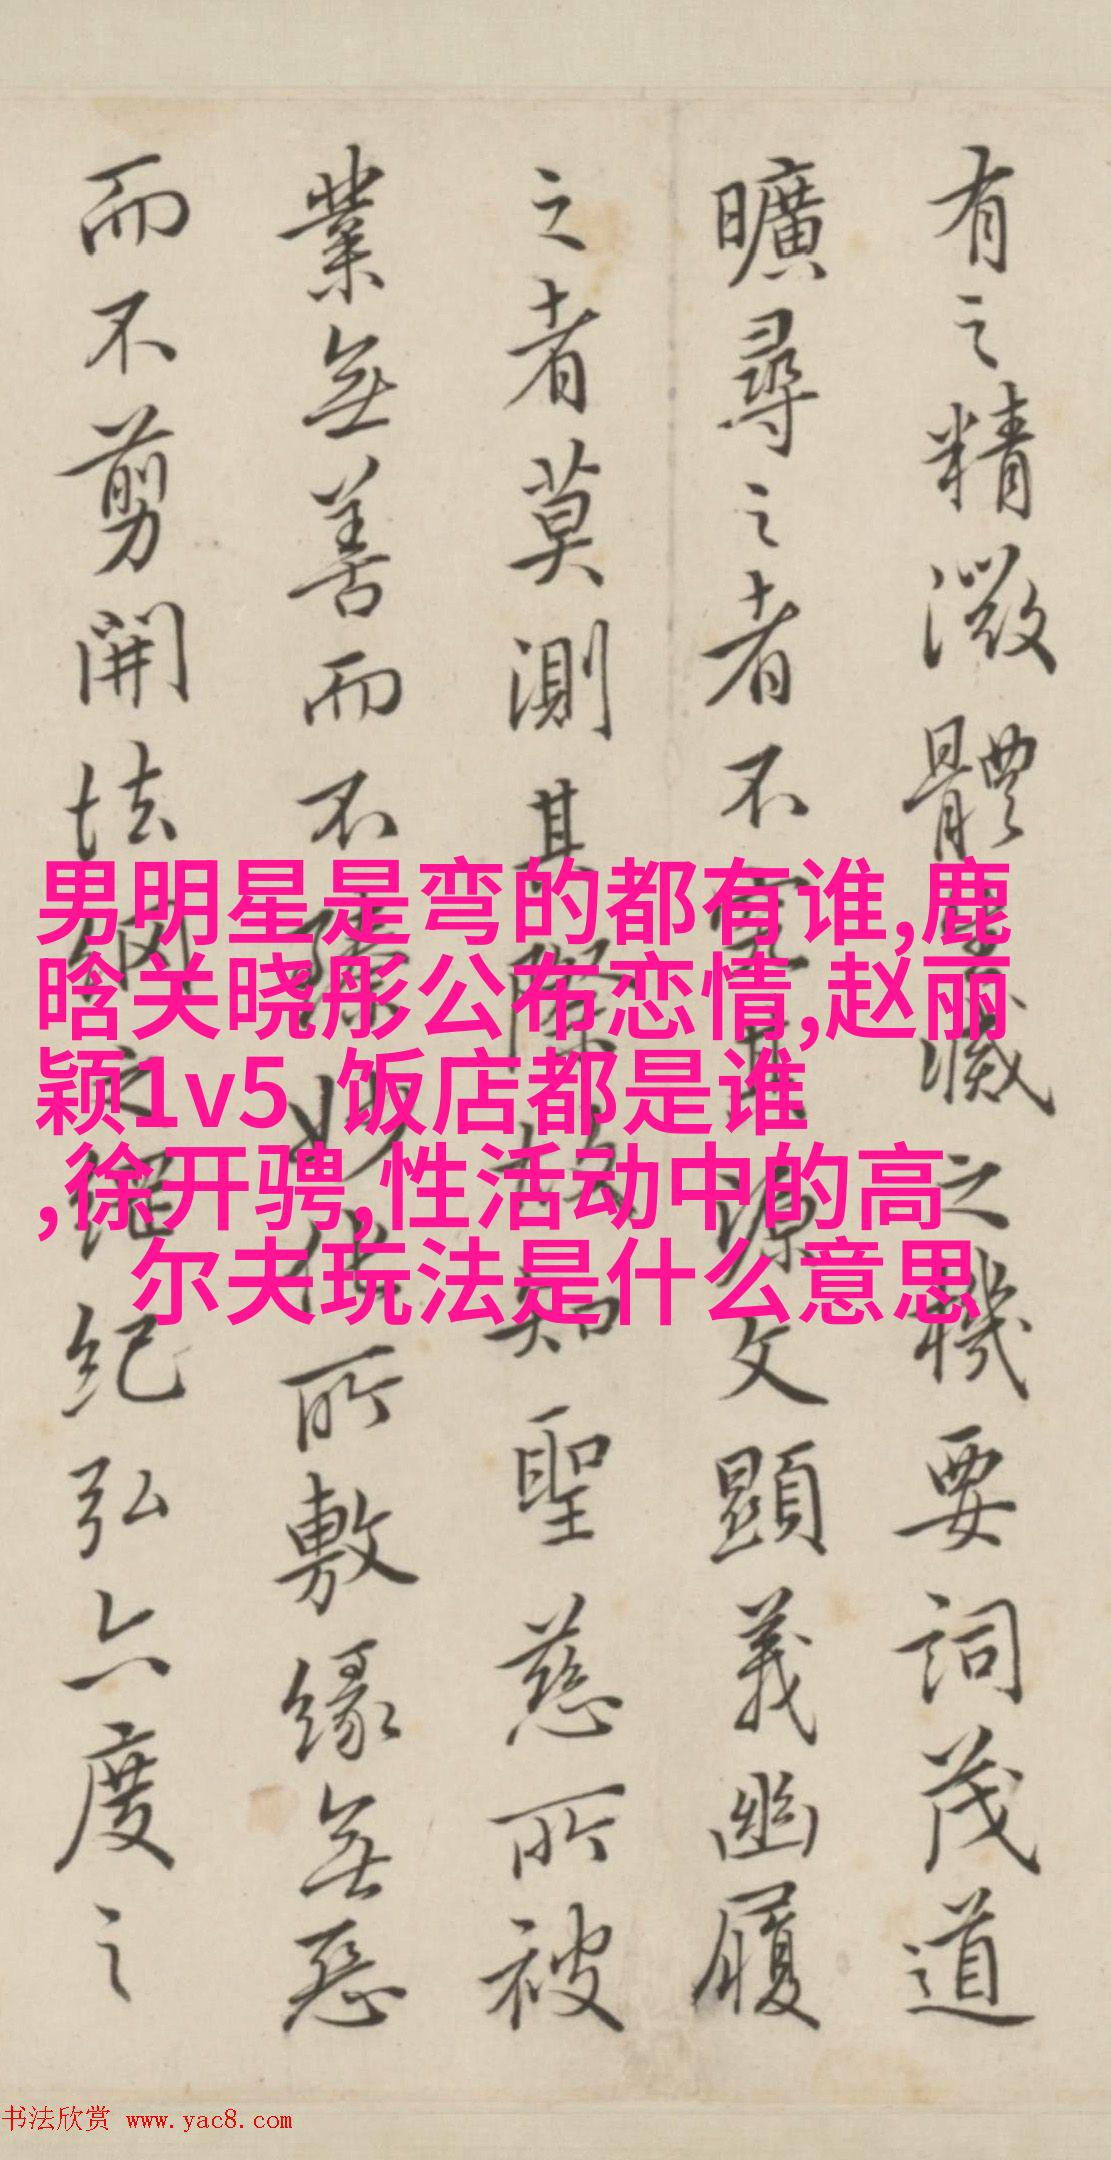 有之精微體生滅之機要詞茂道
曠尋之者不究其源文顯義幽履
之者莫測其際故知聖慈所被
業無善而不臻妙化所敷緣無惡
而不剪開法網之綱紀弘六度之
男明星是弯的都有谁,鹿
晗关晓彤公布恋情,赵丽
颖1v5 饭店都是谁
,徐开骋,性活动中的高
尔夫玩法是什么意思
书法欣赏 www.yac8.com